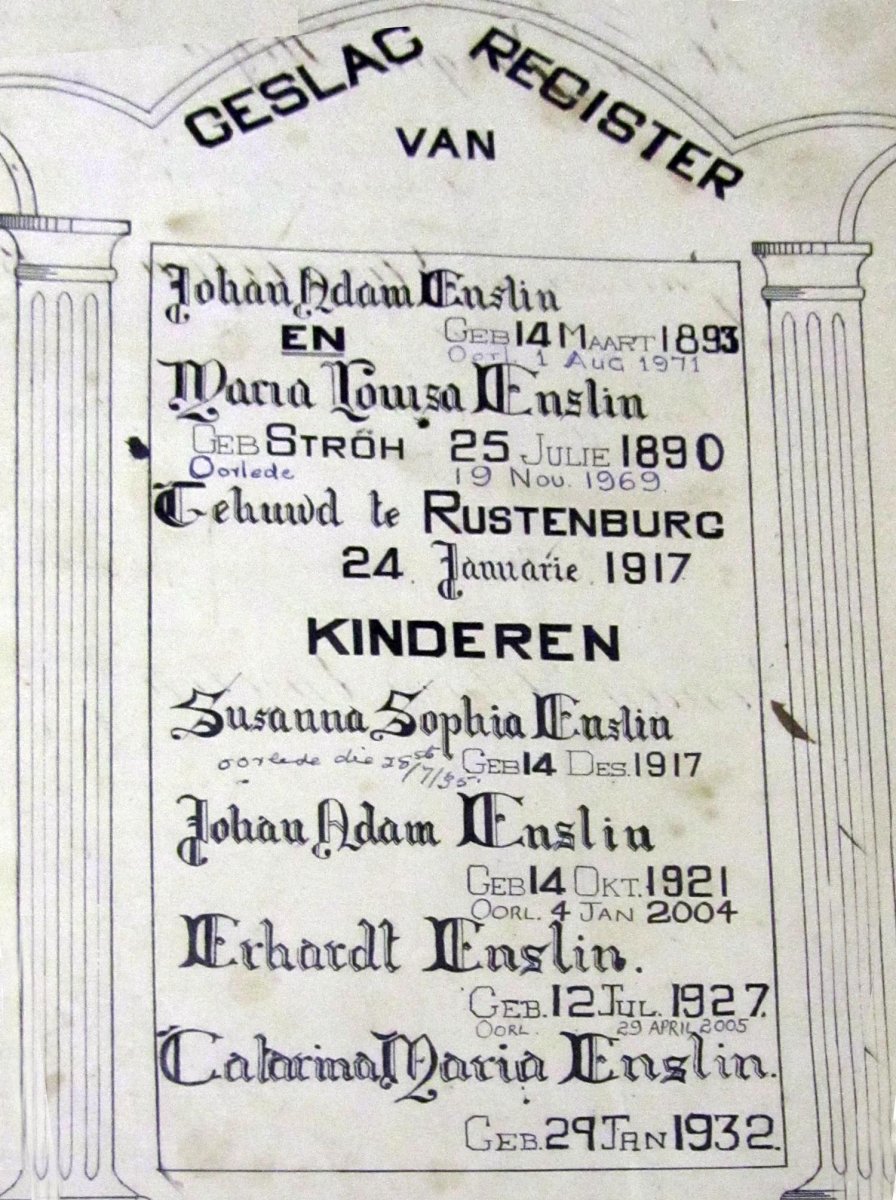 GESLAG REGISTER
VAN
Johan Adam Enslin
EN GEB 14 MAART 1893
Oorl. 1 AUG 1971
Maria Louisa Enslin
GEB STRÖH 25 JULIE 1890
Oorlede 19 Nov. 1969
Gehuwd te RUSTENBURG
24 Januarie 1917
KINDEREN
Susanna Sophia Enslin
GEB 14 DES. 1917
oorlede die
Johan Adam Enslin
GEB 14 OKT. 1921
OORL. 4 JAN 2004
Erhardt Enslin.
GEB. 12 JUL. 1927.
OORL. 29 APRIL 2005
Catarina Maria Enslin.
GEB. 29 JAN 1932.